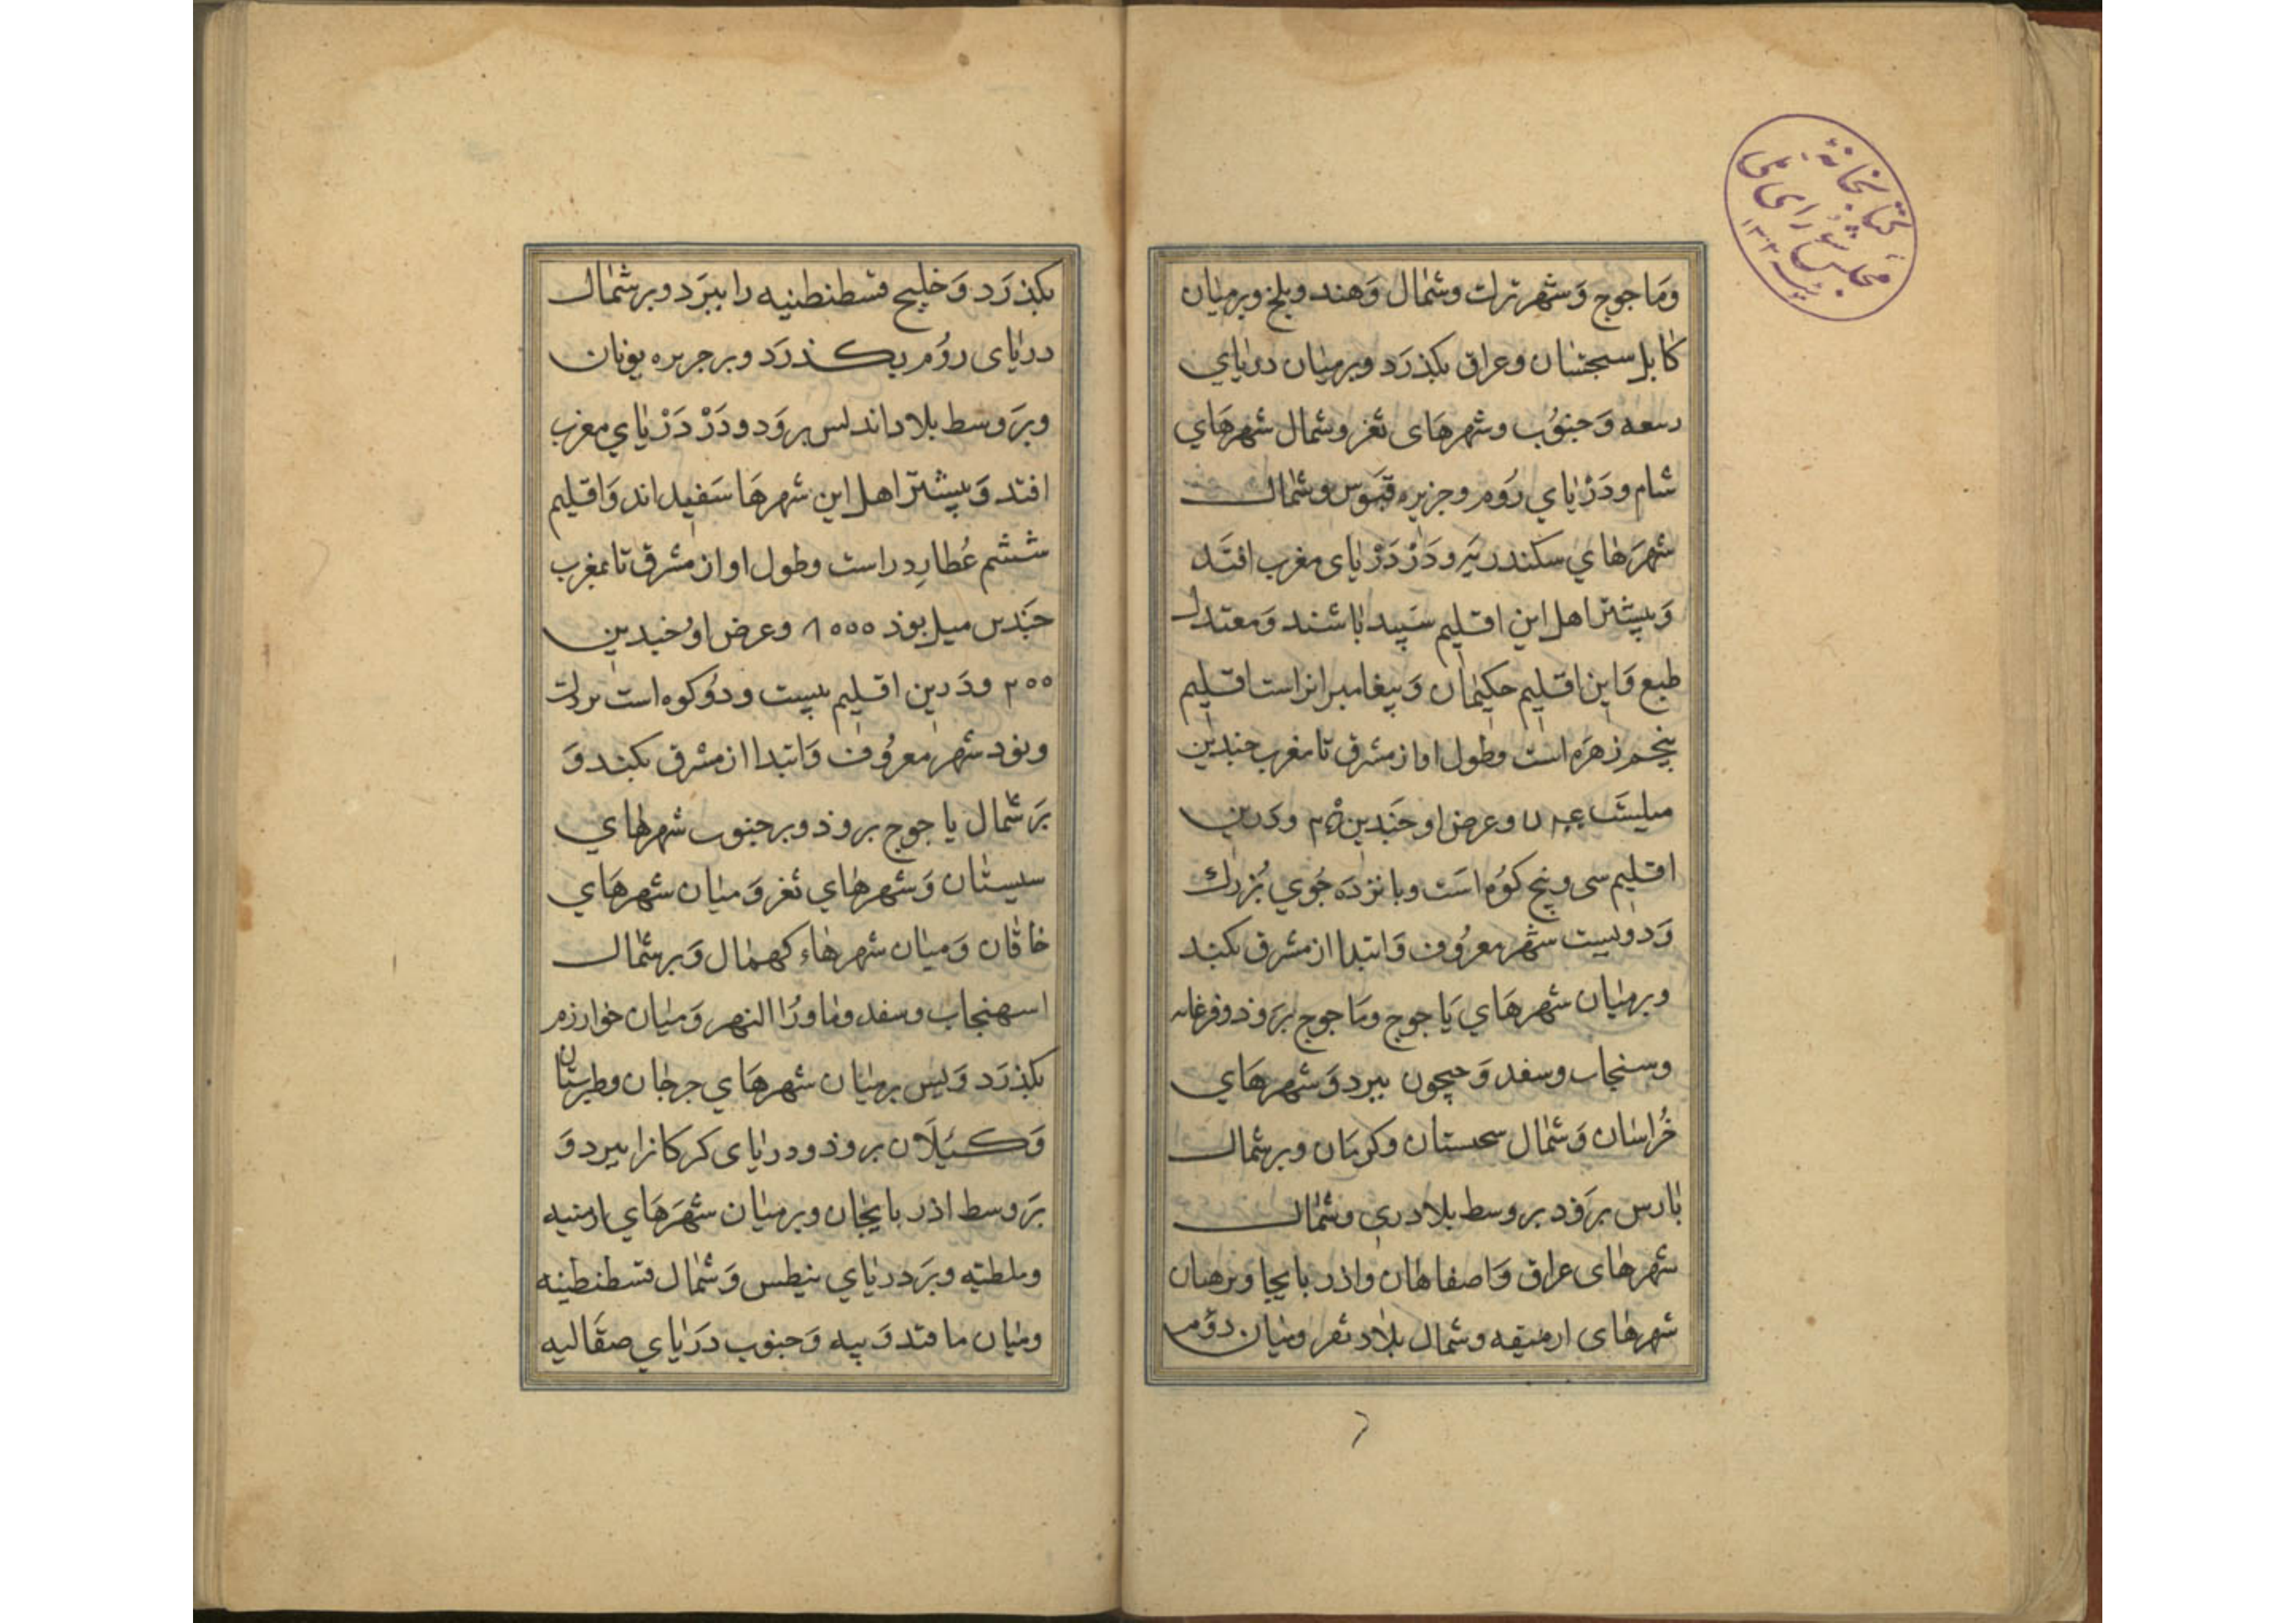 وَمَاجوج وَشهر ترك وشمٰال وَهند وبلخ وبرميٰان
كابل سجستان وعراق بكذرَد وبرميٰان دريٰاي
وَجنوُب وشهرهَاى ثغر وشمال شهرهَاي
شام ودَرْيٰاي رُوم وجزيره قبرس وشمٰال
شهرَهٰاي سكندريَه ودَرْ دَرْيٰاى مغرب افتَد
وَبيشتر اهل اين اقليم سَپيد بٰاشند وَمعتدل
طبع وَاين اقليم حكيمٰان وَپيغامبرانراست اقليم
پنجم زهرَه است وطول او از مشرق تا مغرب چندين
وعرض او چَندين وَدرين
اقليم سى وپنج كوُه اسَت وپانزدَه جُوي بُزرك
وَدويست شهر معروُف وَابتدا از مشرق بكند
وبرميٰان شهرهَاي يَاجوج ومَاجوج برَوذ وفرغانه
وسنجاب وسغد وَجيحون ببرد وَشهرهَاي
خُراسٰان وَشمٰال سجستان وكرمَان وبرشمال
پٰارس برَوَد بروسط بلاد رى وشمٰال
شهرهٰاى عراق وَاصفاهان واذربايجا وبرميان
شهرهٰاى ارمنيقه وشمال بلٰاد ثغر وميٰان دوَم
بكذرَد وَخليج قسطنطنيه را ببرَد وبرشمٰال
دريٰاى روُم بكذرَد وبر جزيره يونان
وبرَوسط بلاد اندلس برَوَد ودَرْ دَرْيٰاي مغرب
افتد وَبيشتر اهل اين شهرهَا سَفيداند وَاقليم
ششم عُطارِد راست وطول او از مشرق تا بمغرب
چَندين ميل بوذ ۸۰۰۰ وعرض او چندين
۲۰۰ ودَرين اقليم بيست ودوُ كوه است بزرك
ونود شهر معروُف وَابتدا از مشرق بكند وَ
برَ شمٰال ياجوج بروذ وبر جنوب شهرهٰاي
سيستٰان وَشهرهٰاي ثغر وَميٰان شهرهَاي
خاقان وَميٰان شهرهٰاء كهمٰال وَبرشمٰال
اسهنجاب وسغد ومٰاورُا النهر وَميٰان خوارزم
بكذرَد وَپس برميٰان شهرهَاي جرجان وطبرستان
وَكيلَان بروذ ودريٰاى كركانرا ببرد وَ
برَوسط اذربايجٰان وبرميٰان شهَرهَاي ارمنيه
وملطيه وبرَدريٰاي نيطس وَشمٰال قسطنطينه
وميٰان ماقتدوَنيه وَجنوب دَرَيٰاي صقَاليه
كتابخانهٔ
مجلس شوراى ملى